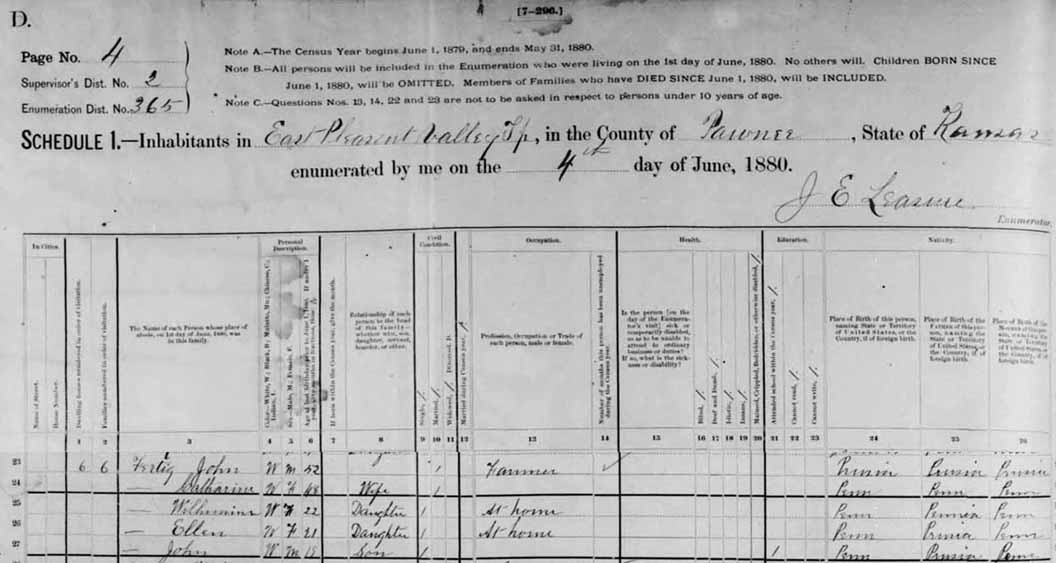 D.
[7-296.]
Page No. 4
Supervisor's Dist. No. 2
Enumeration Dist. No. 365
Note A.—The Census Year begins June 1, 1879, and ends May 31, 1880.
Note B.—All persons will be included in the Enumeration who were living on the 1st day of June, 1880. No others will. Children BORN SINCE
June 1, 1880, will be OMITTED. Members of Families who have DIED SINCE June 1, 1880, will be INCLUDED.
Note C.—Questions Nos. 13, 14, 22 and 23 are not to be asked in respect to persons under 10 years of age.
SCHEDULE 1.—Inhabitants in East Pleasent Valley Tp, in the County of Pawnee, State of Kansas
enumerated by me on the 4th day of June, 1880.
J E
Enumerator.
In Cities.
Name of Street.
House Number.
Dwelling houses numbered in order of visitation.
Families numbered in order of visitation.
The Name of each Person whose place of
abode, on 1st day of June, 1880, was
in this family.
Personal
Description.
Color—White, W; Black, B; Mulatto, Mu; Chinese, C;
Indian, I.
Sex—Male, M; Female, F.
If born within the Census year, give the month.
Relationship of each
person to the head
of this family—
whether wife, son,
daughter, servant,
boarder, or other.
Civil
Condition.
Single, /
Married, /
Widowed, / Divorced, D.
Married during Census year, /
Occupation.
Profession, Occupation or Trade of
each person, male or female.
Number of months this person has been unemployed
during the Census year.
Health.
Is the person [on the
day of the Enumera-
tor's visit] sick or
temporarily disabled,
so as to be unable to
attend to ordinary
business or duties?
If so, what is the sick-
ness or disability?
Blind, /
Deaf and Dumb, /
Idiotic, /
Insane, /
Maimed, Crippled, Bedridden, or otherwise disabled, /
Education.
Attended school within the Census year, /
Cannot read, /
Cannot write, /
Nativity.
Place of Birth of this person,
naming State or Territory
of United States, or the
Country, if of foreign birth.
Place of Birth of the
FATHER of this per-
son, naming the
State or Territory
of United States, or
the Country, if of
foreign birth.
Place of Birth of the
1 2 3 4 5 6 7 8 9 10 11 12 13 14 15 16 17 18 19 20 21 22 23 24 25 26
23 6 6 Fertig John W M 52 / Farmer ✓ Prusia Prusia Prusia
24 — Catharine W F 48 Wife / Penn Penn Penn
25 — Wilhemina W F 22 Daughter / At home Penn Penn
26 — Ellen W F 21 Daughter / At home Penn Prusia Penn
27 — John W M Son / / Penn Prusia Penn